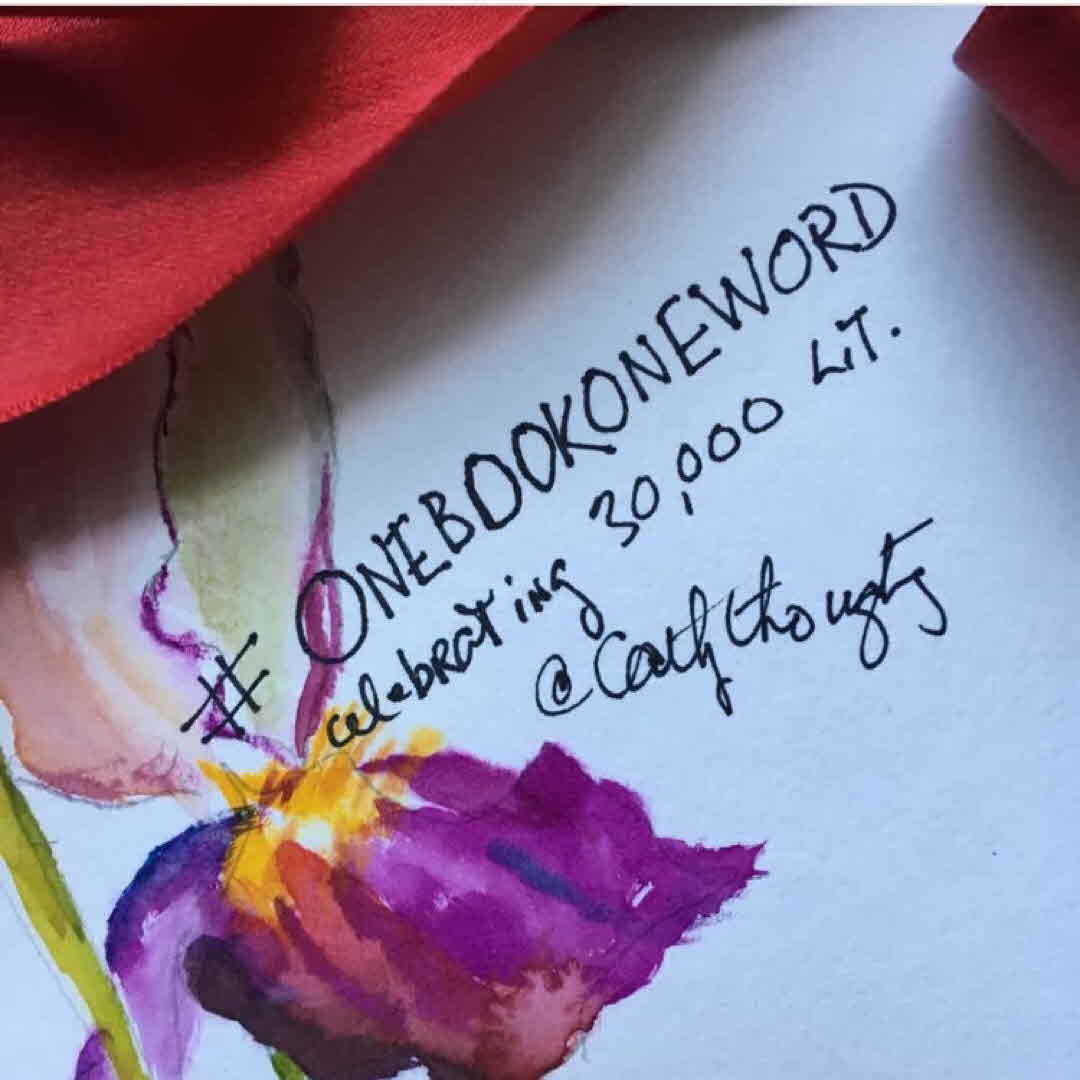 #ONEBOOKONEWORD
celebrating 30,000 LiT.